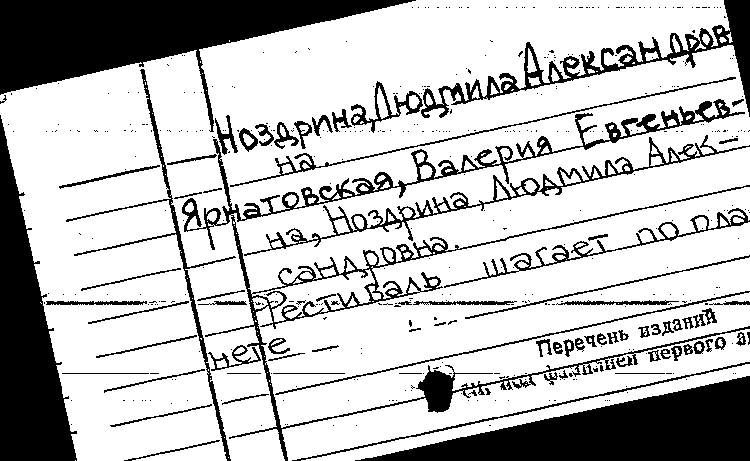 Ноздрина, Людмила Александров
на.
Ярнатовская, Валерия Евгеньев-
на, Ноздрина, Людмила Алек-
сандровна.
Фестиваль шагает по пла
нете
Перечень изданий
см. под фамилией первого ав